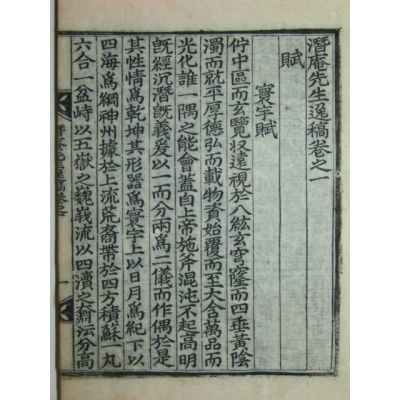 潛庵先生逸稿卷之一
賦
寰宇賦
佇中區而玄覽収遠視於八紘玄穹窿而四垂黃陰
濁而就平厚德弘而載物資始覆而至大含萬品而
光化誰一隅之能會蓋自上帝施斧混沌不起高明
旣經沉潛旣義爰以一而分兩爲二儀而作偶於是
其性情爲乾坤其形器爲寰宇上以日月爲紀下以
四海爲綱神州據於上流荒裔帶於四方積蘇一丸
六合一盆峙以五嶽之巍峩流以四瀆之奫沄分高